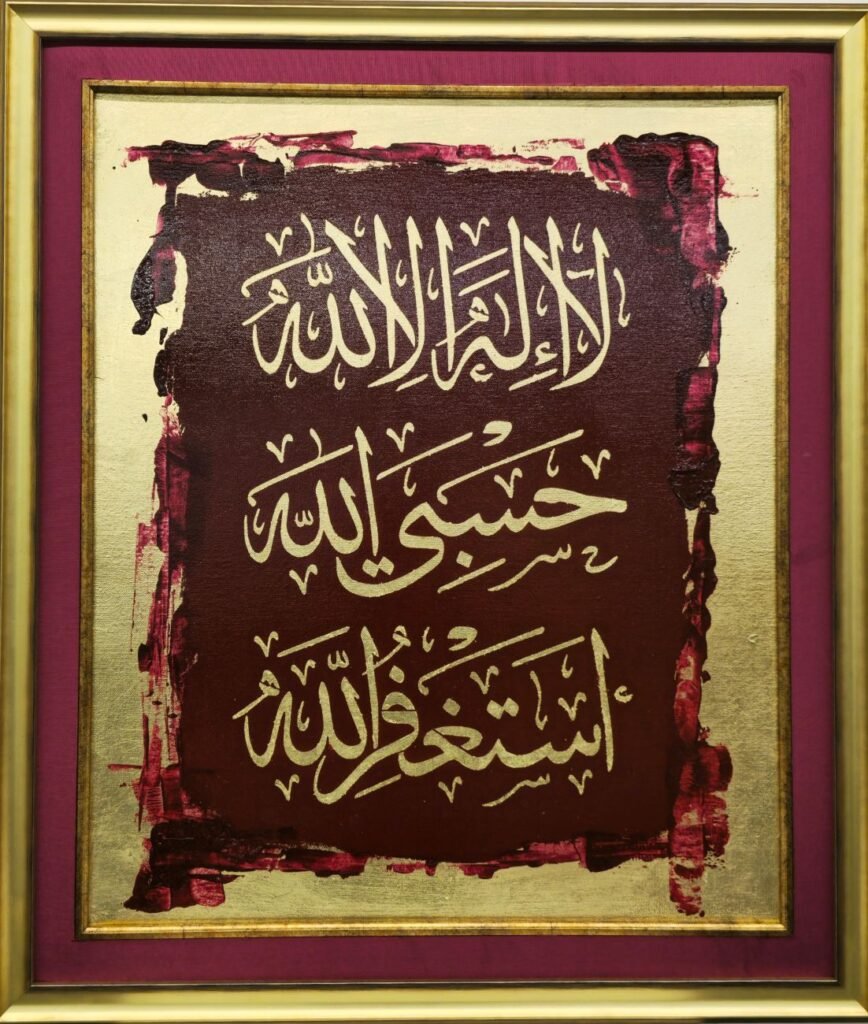 لَا إِلٰهَ إِلَّا اللّٰهُ
حَسْبِيَ اللّٰهُ
أَسْتَغْفِرُ اللّٰهَ